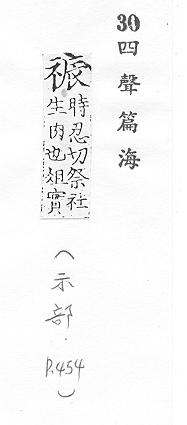 30四聲篇海
祳時忍切祭社
生肉也俎實
(示部.P.454)